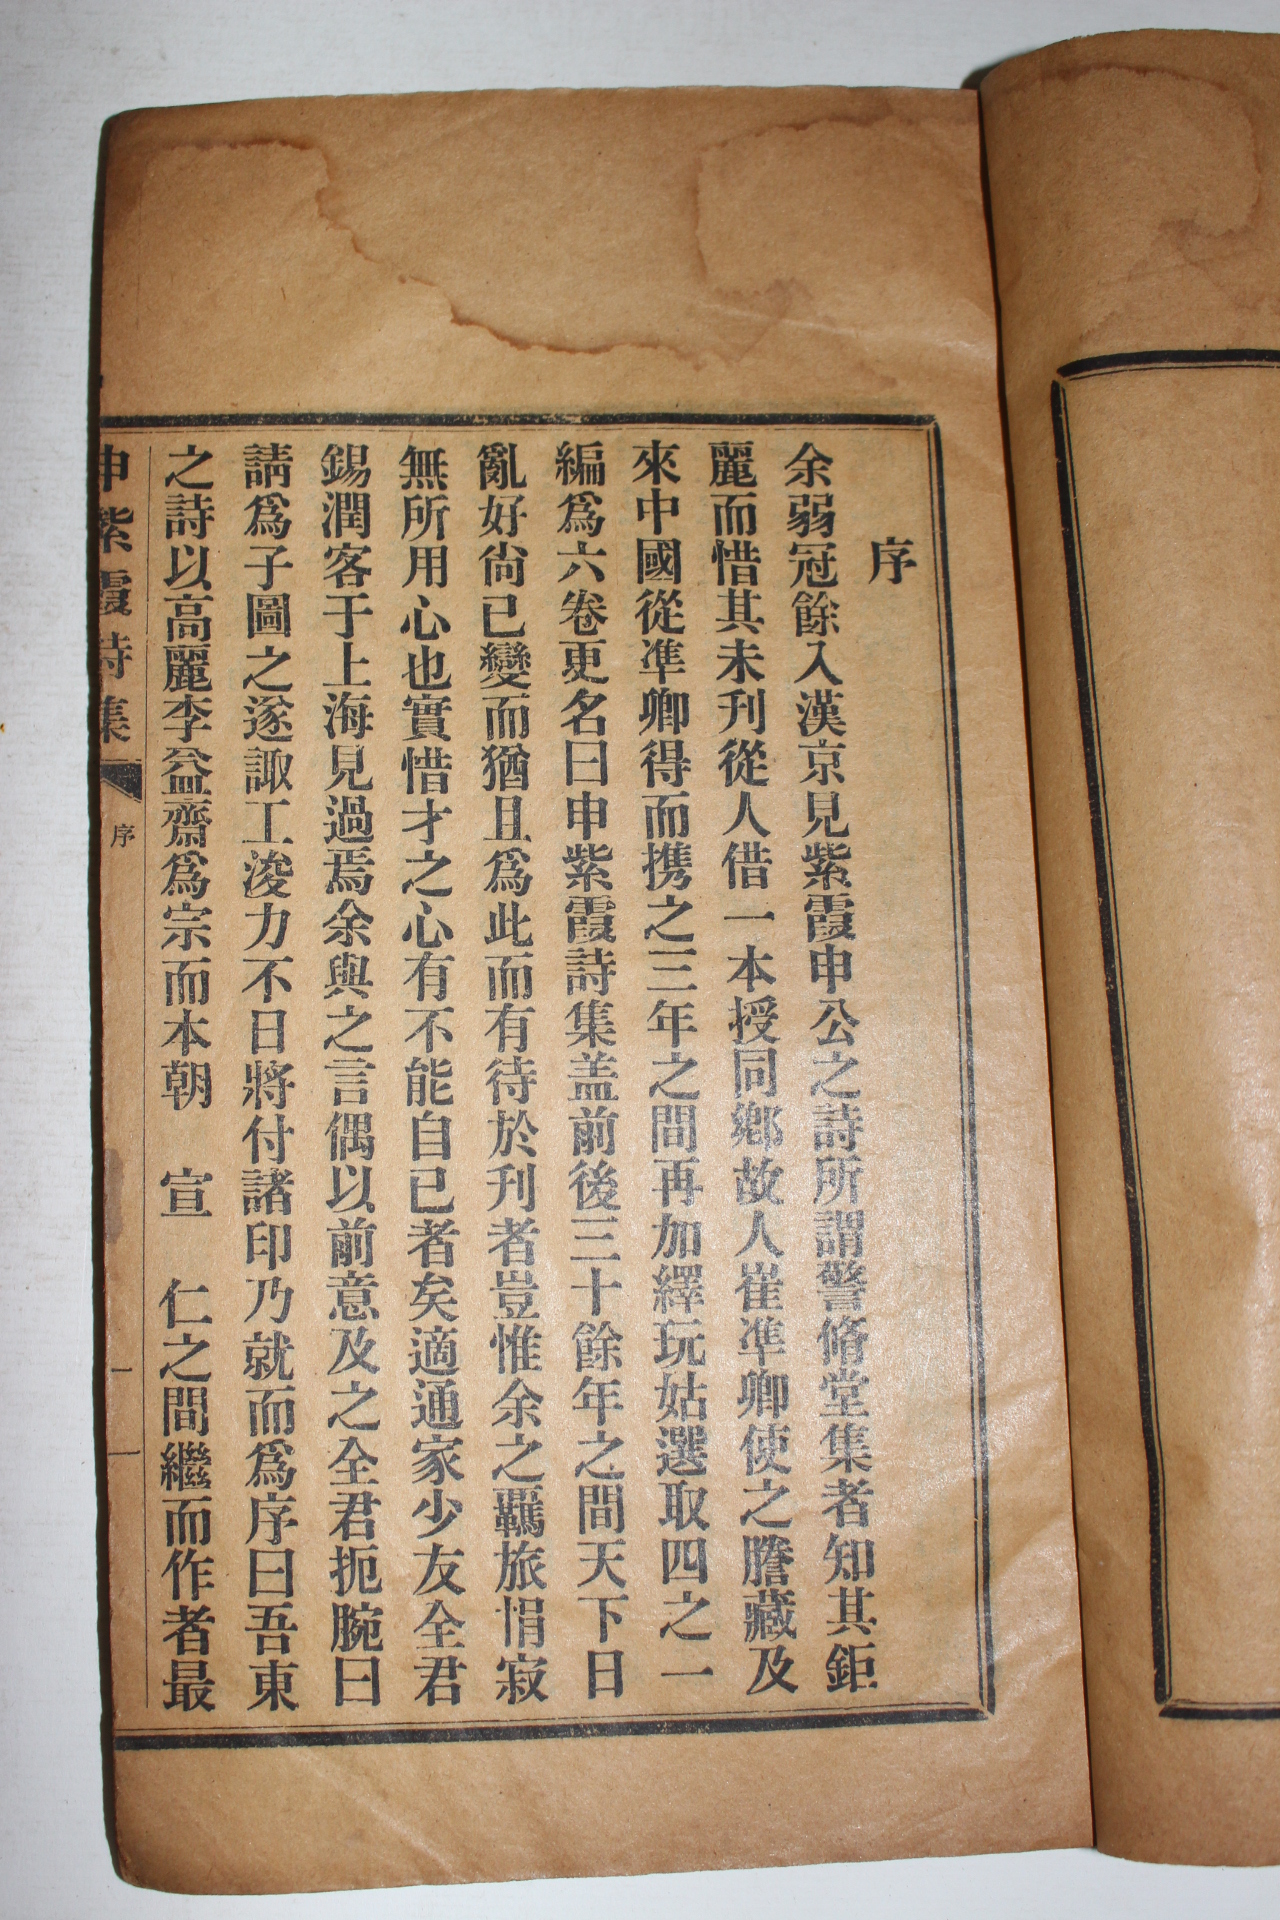 序
余弱冠餘入漢京見紫霞申公之詩所謂警脩堂集者知其鉅
麗而惜其未刋從人借一本授同鄉故人崔準卿使之謄藏及
來中國從準卿得而携之三年之間再加繹玩姑選取四之一
編爲六卷更名曰申紫霞詩集盖前後三十餘年之間天下日
亂好尙已變而猶且爲此而有待於刋者豈惟余之羈旅悁寂
無所用心也實惜才之心有不能自已者矣適通家少友全君
錫潤客于上海見過焉余與之言偶以前意及之全君扼腕曰
請爲子圖之遂諏工浚力不日將付諸印乃就而爲序曰吾東
之詩以高麗李益齋爲宗而本朝　宣　仁之間繼而作者最
申紫霞詩集
序
一